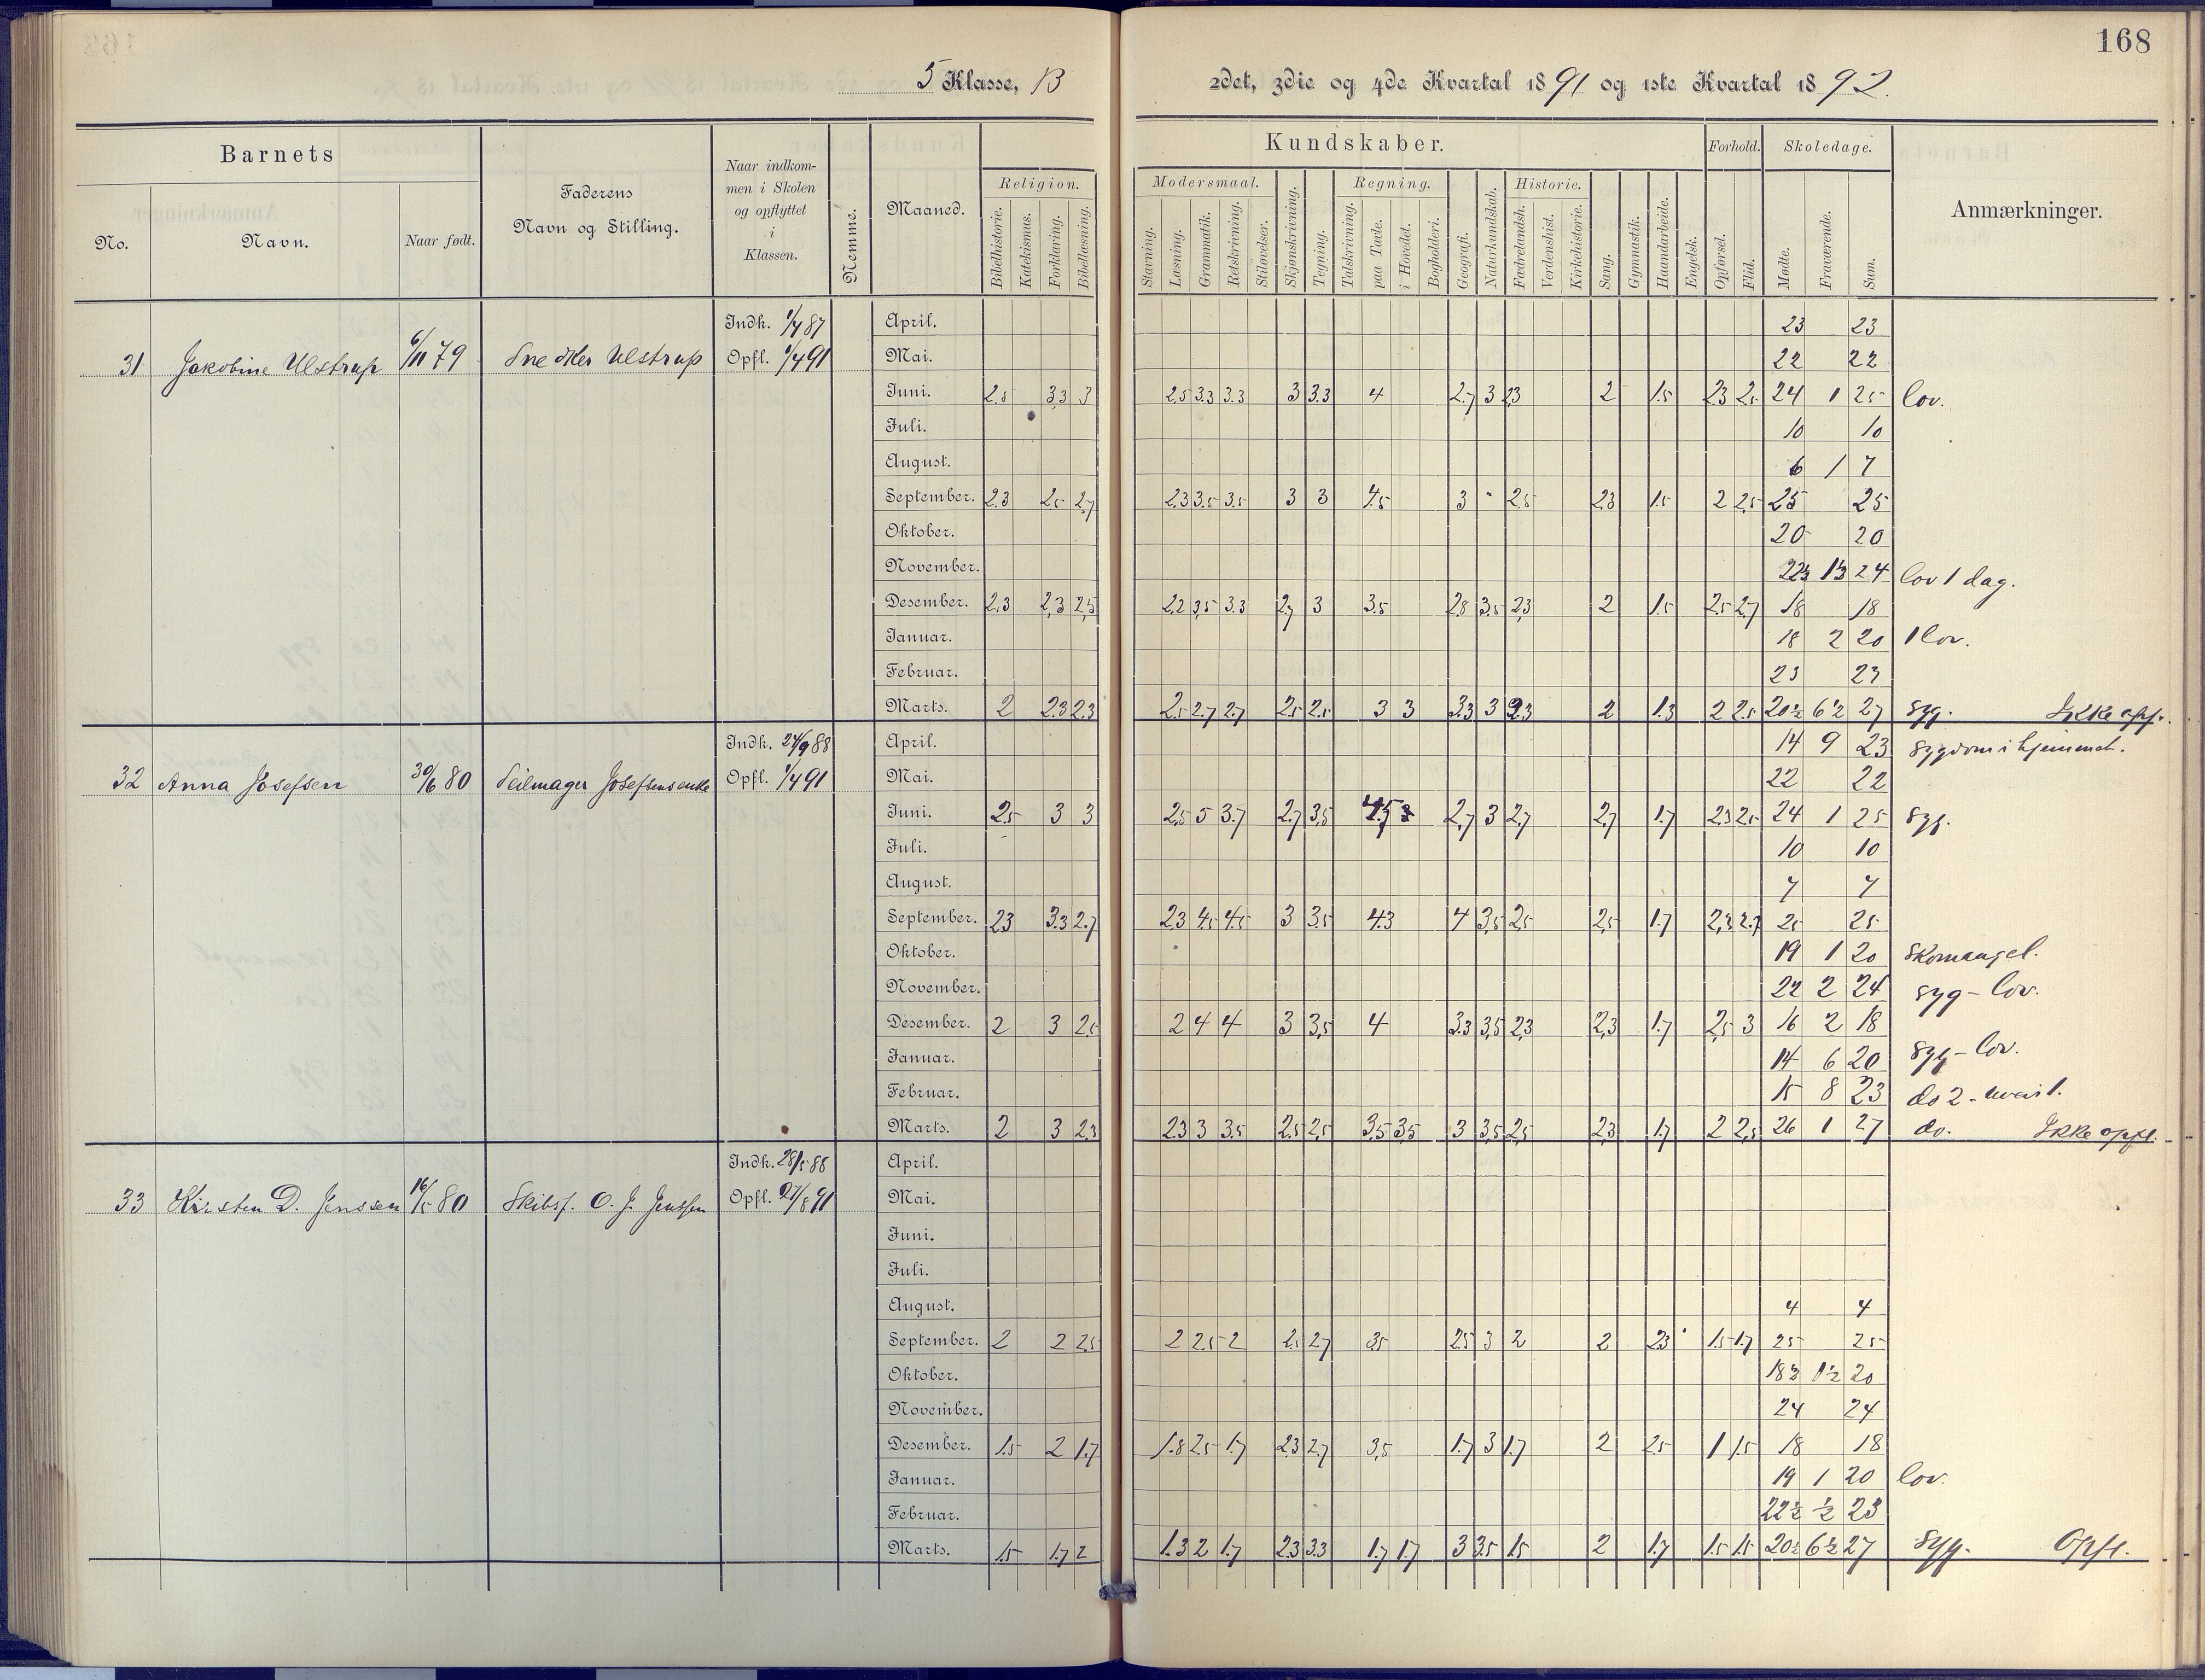 168
5 Klasse, B 2det, 3die og 4de Kvartal 1891 og 1ste Kvartal 1892.
Barnets
No.
Navn.
Naar født.
Faderens
Navn og Stilling.
Naar indkom-
men i Skolen
og opflyttet
i
Klassen.
Nemme.
Maaned.
Kundskaber.
Religion.
Bibelhistorie.
Katekismus.
Forklaring.
Bibellæsning.
Modersmaal.
Stavning.
Læsning.
Grammatik.
Retskrivning.
Stiløvelser.
Skjønskrivning.
Tegning.
Regning.
Talskrivning.
paa Tavle.
i Hovedet.
Bogholderi.
Geografi.
Naturkundskab.
Historie.
Fædrelandsh.
Verdenshist.
Kirkehistorie.
Sang.
Gymnastik.
Haandarbeide.
Engelsk.
Forhold.
Opførsel.
Flid.
Skoledage.
Mødte.
Fraværende.
Sum.
Anmærkninger.
31 Jakobine Ulstrup 6/11 79 Snedker Ulstrup
Indk. 1/4 87
Opfl. 1/4 91
April. 23 23
Mai. 22 22
Juni. 2.5 3.3 3 2.5 3.3 3.3 3 3.3 4 2.7 3 2.3 2 1.5 2.3 2.5 24 1 25 lov.
Juli. 10 10
August. 6 1 7
September. 2.3 2.5 2.7 2.3 3.5 3.5 3 3 4.5 3 " 2.5 2.3 1.5 2 2.5 25 25
Oktober. 20 20
November. 22½ 1½ 24 lov 1 dag.
Desember. 2.3 2.3 2.5 2.2 3.5 3.3 2.7 3 3.5 2.8 3.5 2.3 2 1.5 2.5 2.7 18 18
Januar. 18 2 20 1 lov.
Februar. 23 23
Marts. 2 2.3 2.3 2.5 2.7 2.7 2.5 2.5 3 3 3.3 3 2.3 2 1.3 2 2.5 20½ 6½ 27 syg. Ikke opf.
32 Anna Josefsen 30/6 80 Seilmager Josefsens enke
Indk. 24/9 88
Opfl. 1/4 91
April. 14 9 23 sygdom i hjemmet.
Mai. 22 22
Juni. 2.5 3 3 2.5 5 3.7 2.7 3.5 4.5 2.7 3 2.7 2.7 1.7 2.3 2.5 24 1 25 syg.
Juli. 10 10
August. 7 7
September. 2.3 3.3 2.7 2.3 4.5 4.5 3 3.5 4.3 4 3.5 2.5 2.5 1.7 2.3 2.7 25 25
Oktober. 19 1 20 skomangel.
November. 22 2 24 syg - lov.
Desember. 2 3 2.5 2 4 4 3 3.5 4 3.3 3.5 2.3 2.3 1.7 2.5 3 16 2 18
Januar. 14 6 20 syg - lov.
Februar. 15 8 23 do 2 -
Marts. 2 3 2.3 2.3 3 3.5 2.5 2.5 3.5 3.5 3 3.5 2.5 2.3 1.7 2 2.5 26 1 27 do. Ikke opfl.
33 Kirsten D. Jenssen 16/5 80 Skibsf. O. J. Jenssen
Indk. 28/5 88
Opfl. 27/8 91
April.
Mai.
Juni.
Juli.
August. 4 4
September. 2 2 2.5 2 2.5 2 2.5 2.7 3.5 2.5 3 2 2 2.3 1.5 1.7 25 25
Oktober. 18½ 1½ 20
November. 24 24
Desember. 1.5 2 1.7 1.8 2.5 1.7 2.3 2.7 3.5 1.7 3 1.7 2 2.5 1 1.5 18 18
Januar. 19 1 20 lov.
Februar. 22½ ½ 23
Marts. 1.5 1.7 2 1.3 2 1.7 2.3 3.3 1.7 1.7 3 3.5 1.5 2 1.7 1.5 1.5 20½ 6½ 27 syg. Opfl.